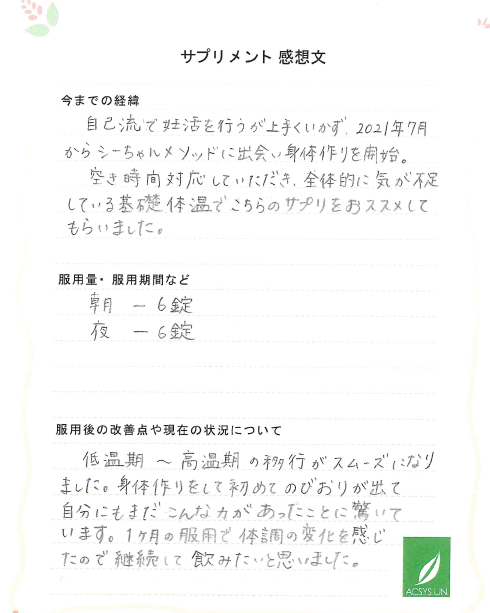 サプリメント 感想文
今までの経緯
自己流で妊活を行うが上手くいかず、2021年7月
からシーちゃんメソッドに出会い身体作りを開始。
空き時間対応していただき、全体的に気が不足
している基礎体温でこちらのサプリをおススメして
もらいました。
服用量・服用期間など
朝 ー 6錠
夜 ー 6錠
服用後の改善点や現在の状況について
低温期 〜 高温期の移行がスムーズになり
ました。身体作りをして初めてのびおりが出て
自分にもまだこんな力があったことに驚いて
います。1ヶ月の服用で体調の変化を感じ
たので継続して飲みたいと思いました。
ACSYSIUN